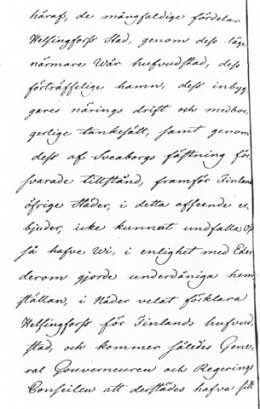 häraf, de mångfaldige fördelar
Helsingfors Stad, genom dess läge
närmare Wår hufvudstad, dess
förträffelige hamn, dess inbyg-
gares närings drift och medbor-
gerlige tankesätt, samt genom
dess af Sveaborgs fästning för-
svarade tillstånd, framför Finlands
öfrige Städer, i detta afseende er-
bjuder, icke kunnat undfalla Oss
så hafve Wi, i enlighet med Eder
derom gjorde underdåniga hem-
ställan, i Nåder velat förklara
Helsingfors för Finlands hufvud-
stad, och kommer således Gene-
ral Gouverneuren och Regerings
Conseilen att derstädes hafva sitt